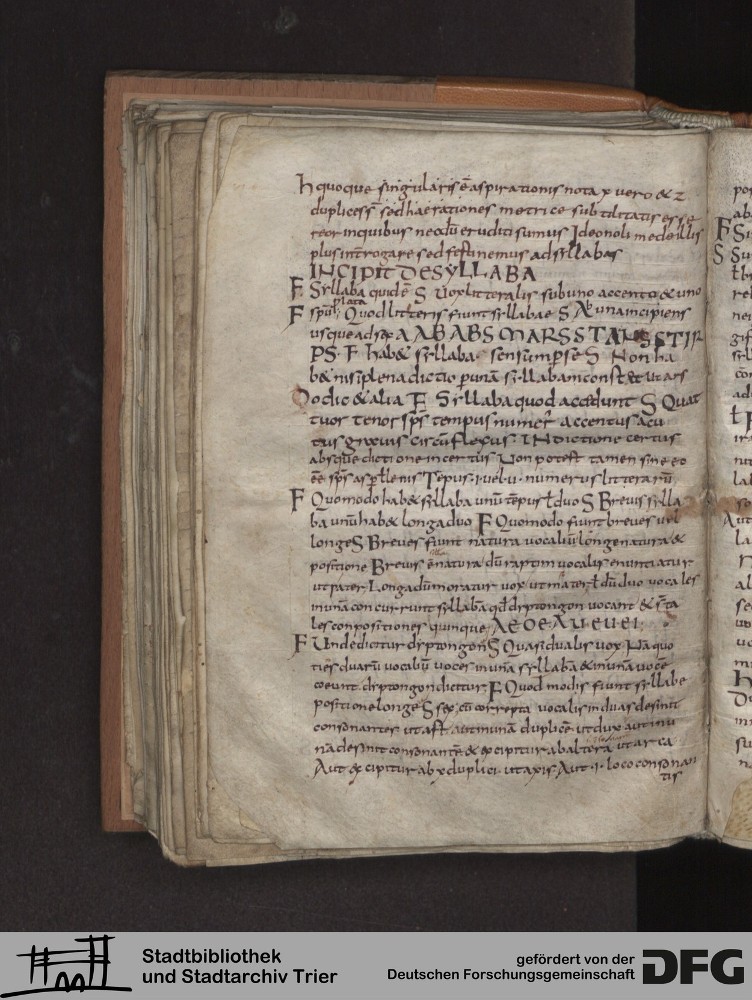 h quoque singularis ē aspirationis nota x vero & z
duplices s̄ sed hae rationes metrice subtilitatis esse
reor inquibus necdū eruditi sumus Ideo noli me de illis
plus int̄rogare sed festinemus ad syllabas
INCIPIT DE SYLLABA
F Syllaba quid ē S Vox litteralis sub uno accentu & uno
F spū plata Quod litteris fiunt syllabae S Ab una incipiens
usque ad sex A AB ABS MARS STANS STIR
PS. F hab& syllaba sensum p se S Non ha
b& nisi plena dictio p unā syllabam const& ut ars
do dic & alia F Syllaba quod accedunt S Quat
tuor tenor sp̄s tempus numer accentus acu
tus gravis circūflexus IN dictione certus
absque dictione incertus Non potest tamen sine eo
ēē sp̄s asp lenis Tēpus numerus litterarū
F Quomodo hab& syllaba unū tēpus ł duo S Brevis sylla
ba unū hab& longa duo F Quomodo fiunt breves vel
longe S Breves fiunt natura vocaliū longe natura &
positione Brevis ē natura dū raptim vocalis enuntiatur
ut pater Longa dū moratur vox ut mater ł dū duo vocales
in unā concurrunt syllabā qd diptongon vocant & s̄ ta
les conpositiones quinque AE OE AU EU EI
F Unde dicitur diptongon S Quasi dualis vox Nā quo
tiēs duarū vocaliū voces in unā syllabā & in unā voce
coeunt diptongon dicitur F Quod modis fiunt syllabe
positione longe S sex cū correpta vocalis in duas desinit
consonantes ut ast aut in unā duplicē ut dux aut in u
nā desinit consonantē & excipitur ab altera ut arca
Aut excipitur ab x duplici ut axis Aut i loco consonan
tis
Stadtbibliothek
und Stadtarchiv Trier
gefördert von der
Deutschen Forschungsgemeinschaft
DFG